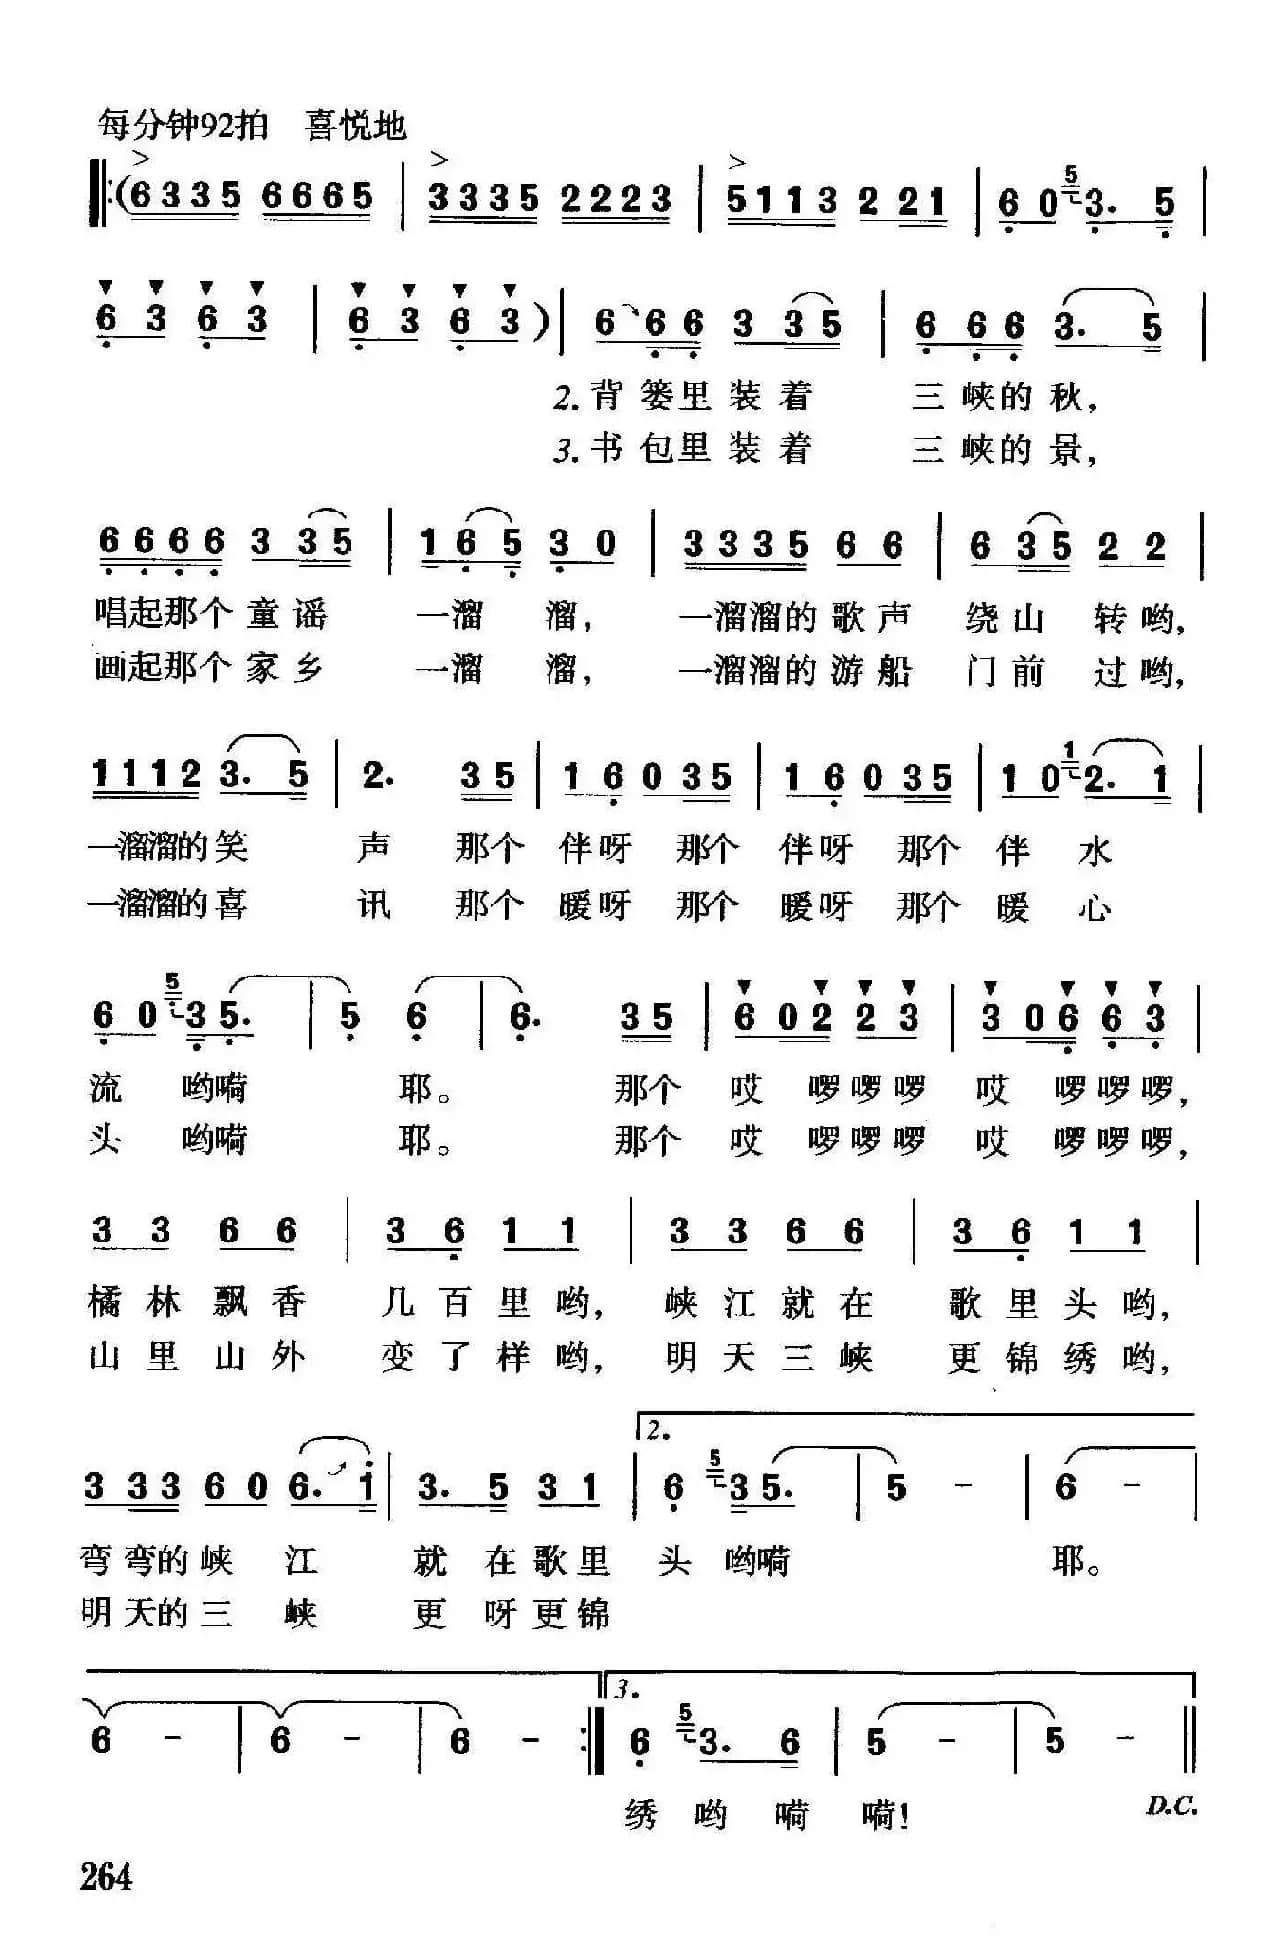 每分钟92拍 喜悦地
(6335 6665 | 3335 2223 | 5113 2 21 | 6 0 5 3. 5 |
6 3 6 3 | 6 3 6 3) | 6 6 6 3 35 | 6 6 6 3. 5 |
2. 背篓里装着 三峡的秋,
3. 书包里装着 三峡的景,
6666 3 35 | 1 6 5 3 0 | 3335 6 6 | 6 35 2 2 |
唱起那个童谣 一溜 溜, 一溜溜的歌声 绕山 转哟,
画起那个家乡 一溜 溜, 一溜溜的游船 门前 过哟,
1112 3. 5 | 2. 35 | 1 6 0 35 | 1 6 0 35 | 1 0 1 2. 1 |
一溜溜的笑 声 那个 伴呀 那个 伴呀 那个 伴 水
一溜溜的喜 讯 那个 暖呀 那个 暖呀 那个 暖 心
6 0 5 3 5. | 5 6 | 6. 35 | 6 0 2 2 3 | 3 0 6 6 3 |
流 哟嗬 耶。 那个 哎 啰啰啰 哎 啰啰啰,
头 哟嗬 耶。 那个 哎 啰啰啰 哎 啰啰啰,
3 3 6 6 | 3 6 1 1 | 3 3 6 6 | 3 6 1 1 |
橘林飘香 几百里哟, 峡江就在 歌里头哟,
山里山外 变了样哟, 明天三峡 更锦绣哟,
2.
3 33 6 0 6. i | 3. 5 3 1 | 6 5 3 5. | 5 - | 6 - |
弯弯的峡 江 就 在歌里 头 哟嗬 耶。
明天的三 峡 更 呀更锦
3.
6 - | 6 - | 6 - :| 6 5 3. 6 | 5 - | 5 - ||
绣 哟 嗬 嗬! D.C.
264